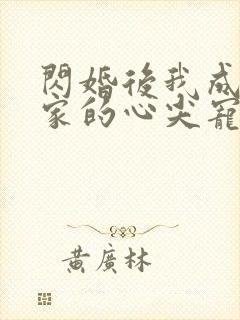 閃婚後我成
家的心尖寵
黃廣林